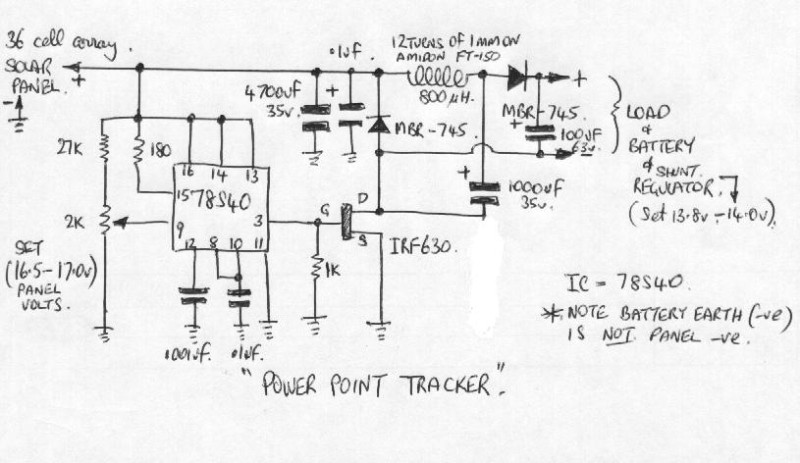 36 cell array.
SOLAR
PANEL.
+
-
27K
180
2K
SET
(16.5-17.0v)
PANEL
VOLTS.
16
14
13
15
78S40
9
3
12
8
10
11
.001uf.
.01uf.
4700uf
35v.
+
.1uf.
12 TURNS OF 1MM ON
AMIDON FT-150
800µH.
MBR-745.
MBR-745.
+
+
100UF
63v.
-
LOAD
&
BATTERY
& SHUNT.
REGULATOR.
(Set 13.8v-14.0v)
+
1000uf
35v.
G
D
S
IRF630.
1K
IC = 78S40.
*NOTE BATTERY EARTH (-ve)
IS NOT PANEL -ve.
"POWER POINT TRACKER".